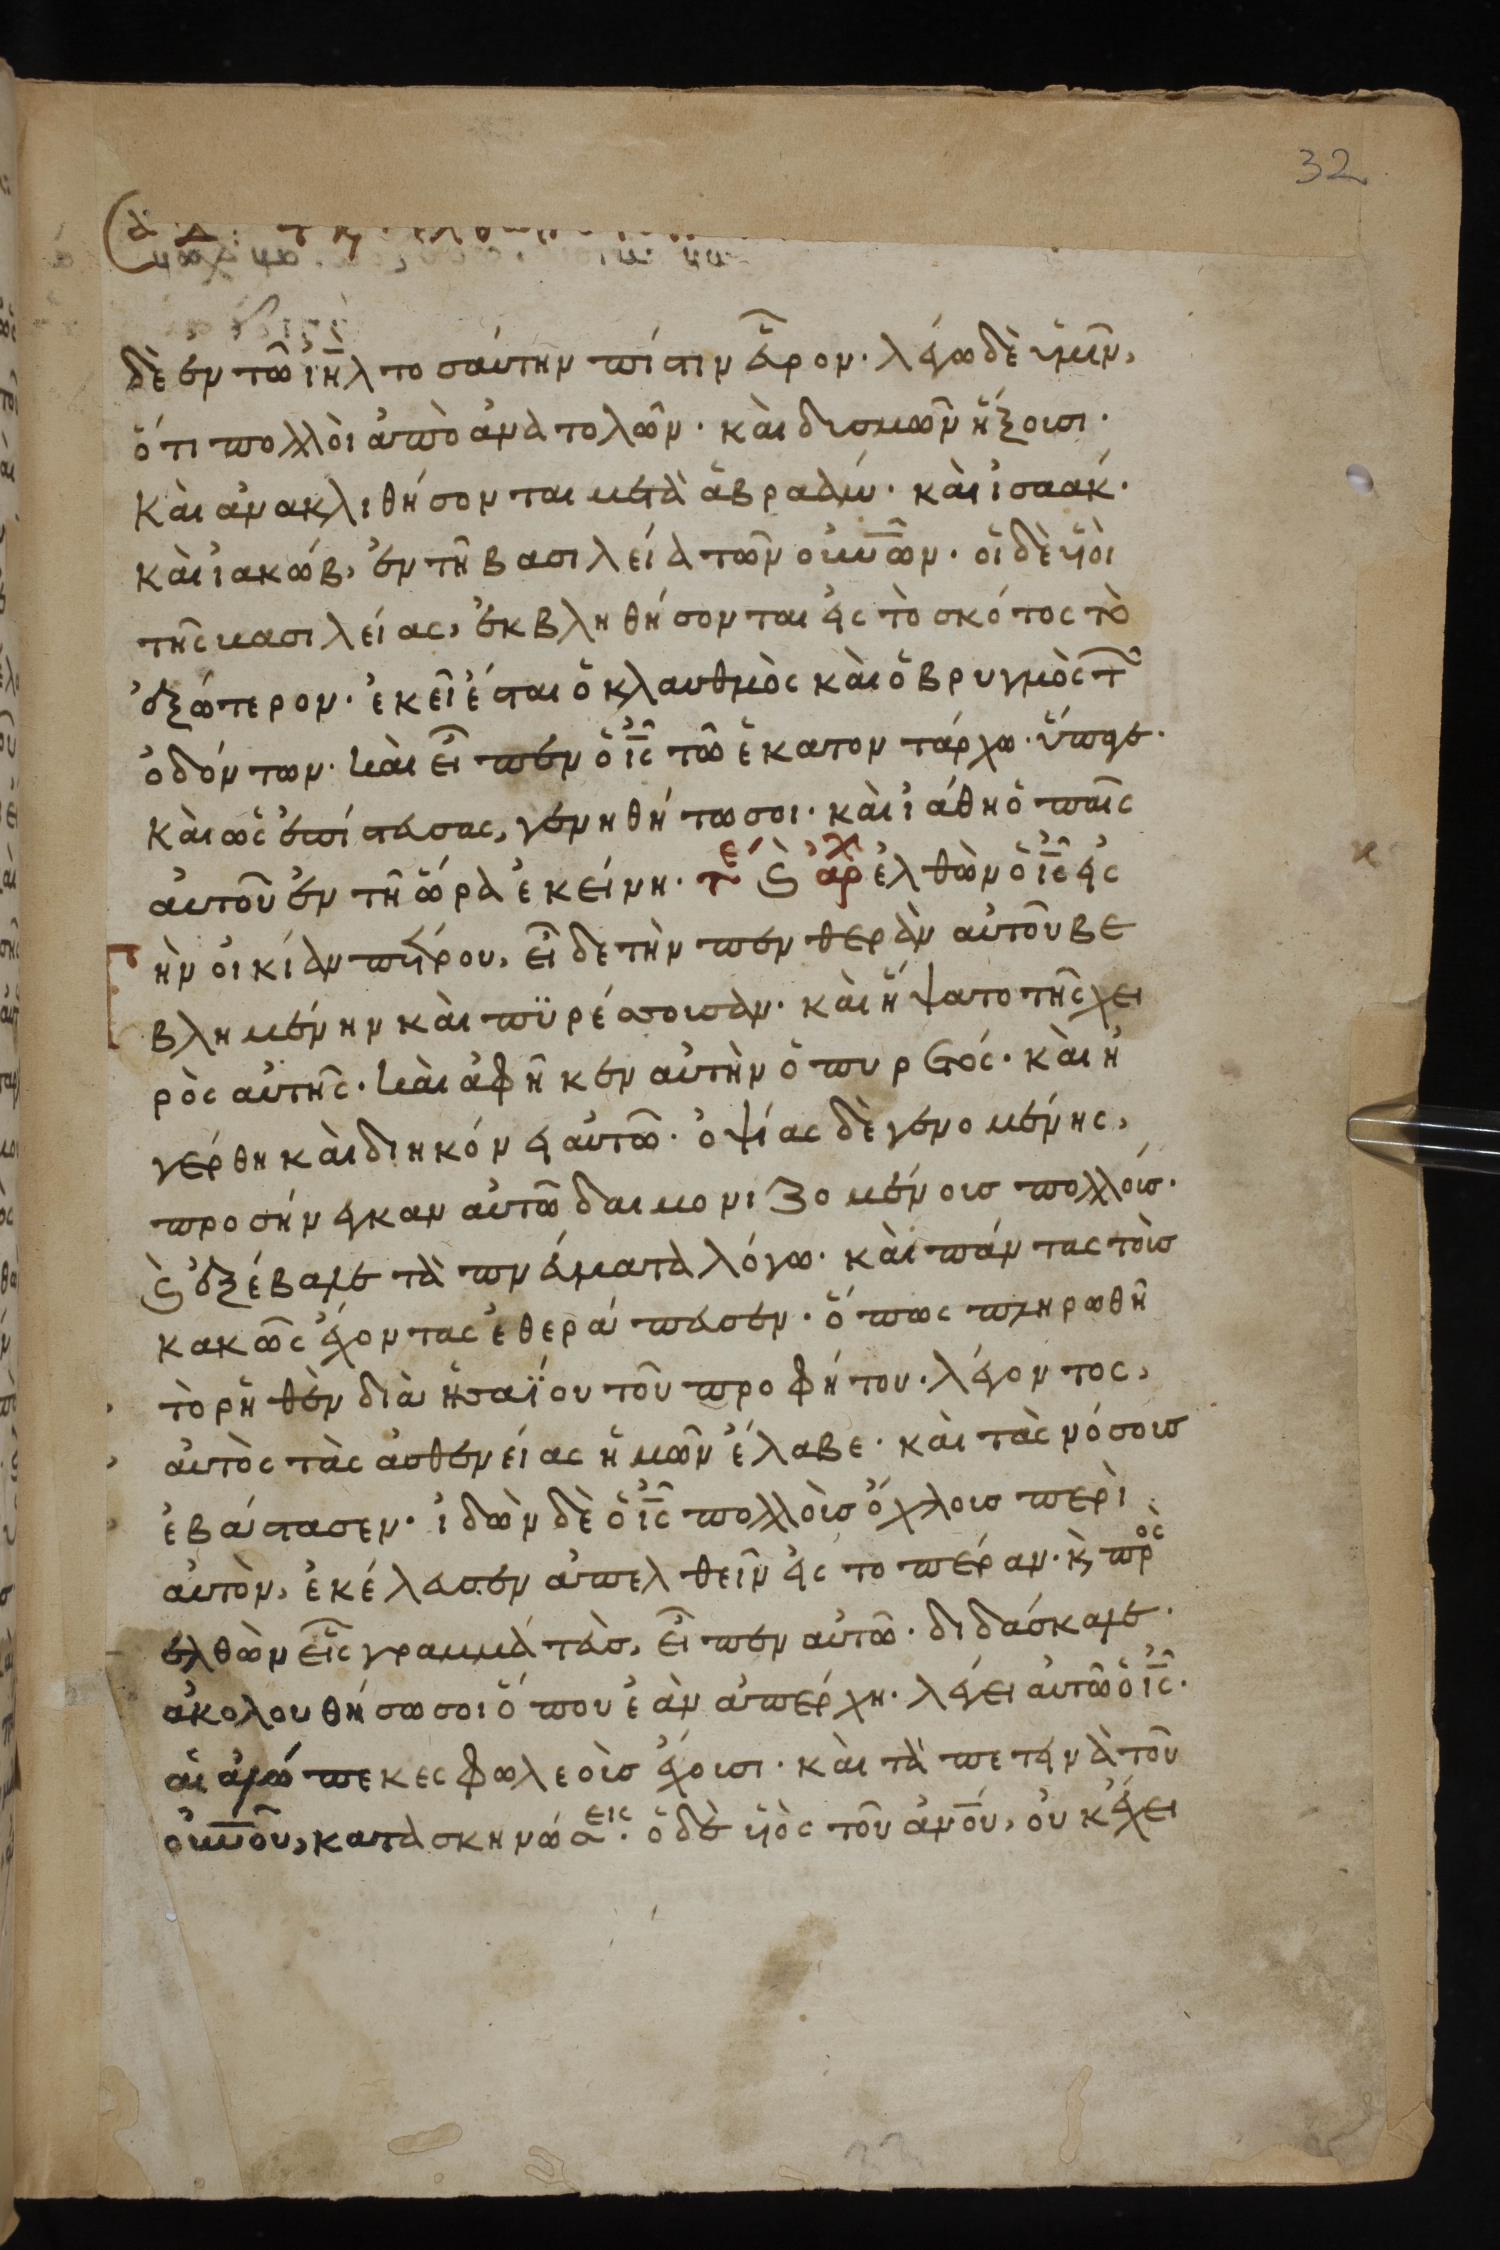 32
δὲ ἐν τῶ ἰη̅λ τοσαύτην πίστιν εὗρον· λέγω δὲ ὑμῖν,
ὅτι πολλοὶ ἀπὸ ἀνατολῶν· καὶ δυσμῶν ἥξουσι·
Καὶ ἀνακλιθήσονται μετὰ ἀβραὰμ· καὶ ἰσαάκ·
Καὶ ἰακώβ, ἐν τῆ βασιλεία τῶν οὐν̅ῶν· οἱ δὲ ὑιοὶ
τῆς βασιλείας, ἐκβληθήσονται εἰς τὸ σκότος τὸ
ἐξώτερον· ἐκεῖ ἔσται ὁ κλαυθμὸς καὶ ὁ βρυγμὸς τῶ
ὀδόντων· Καὶ εἶπεν ὁ ἰς̅ τῶ ἑκατοντάρχω· ὕπαγε·
Καὶ ὡς ἐπίστευσας, γενηθήτω σοι· καὶ ἰάθη ὁ παῖς
αὐτοῦ ἐν τῆ ὥρα ἐκείνη· τε ς ἀρχ ἐλθὼν ὁ ἰς̅ εἰς
τὴν οἰκίαν πέτρου, εἶδε τὴν πενθερὰν αὐτοῦ βε
βλημένην καὶ πϋρέσσουσαν· καὶ ἥψατο τῆς χει
ρὸς αὐτῆς· Καὶ ἀφῆκεν αὐτὴν ὁ πυρετός· καὶ ἠ
γέρθη καὶ διηκόνει αὐτῶ· ὀψίας δὲ γενομένης,
προσήνεγκαν αὐτῶ δαιμονιζομένους πολλούς·
ς ἐξέβαλε τὰ πνεύματα λόγω· καὶ πάντας τοὺς
κακῶς ἔχοντας ἐθεράπευσεν· ὅπως πληρωθῆ
τὸ ρηθὲν διὰ ἡσαΐου τοῦ προφήτου· λέγοντος,
αὐτὸς τὰς ἀσθενείας ἡμῶν ἔλαβε· καὶ τὰς νόσους
ἐβάστασεν· ἰδὼν δὲ ὁ ἰς̅ πολλοὺς ὄχλους περὶ
αὐτὸν, ἐκέλευσεν ἀπελθεῖν εἰς το πέραν· κ, προς
ελθὼν εἷς γραμματεὺς, εἶπεν αὐτῶ· διδάσκαλε·
ἀκολουθήσω σοι ὅπου ἐὰν ἀπέρχη· λέγει αὐτῶ ὁ ἰς̅·
αἱ ἀλώπεκες φωλεοὺς ἔχουσι· καὶ τὰ πετεινὰ τοῦ
οὐν̅οῦ, κατασκηνώσεις· ὁ δὲ ὑιὸς τοῦ ἀν̅ου, οὐκ ἔχει